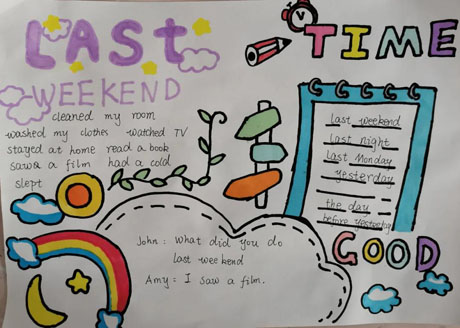 LAST
WEEKEND
cleaned my room
washed my clothes watched TV
stayed at home read a book
saw a film had a cold
slept
TIME
last weekend
last night
last Monday
yesterday
the day
before yesterday
John: what did you do
last weekend
Amy: I saw a film.
GOOD